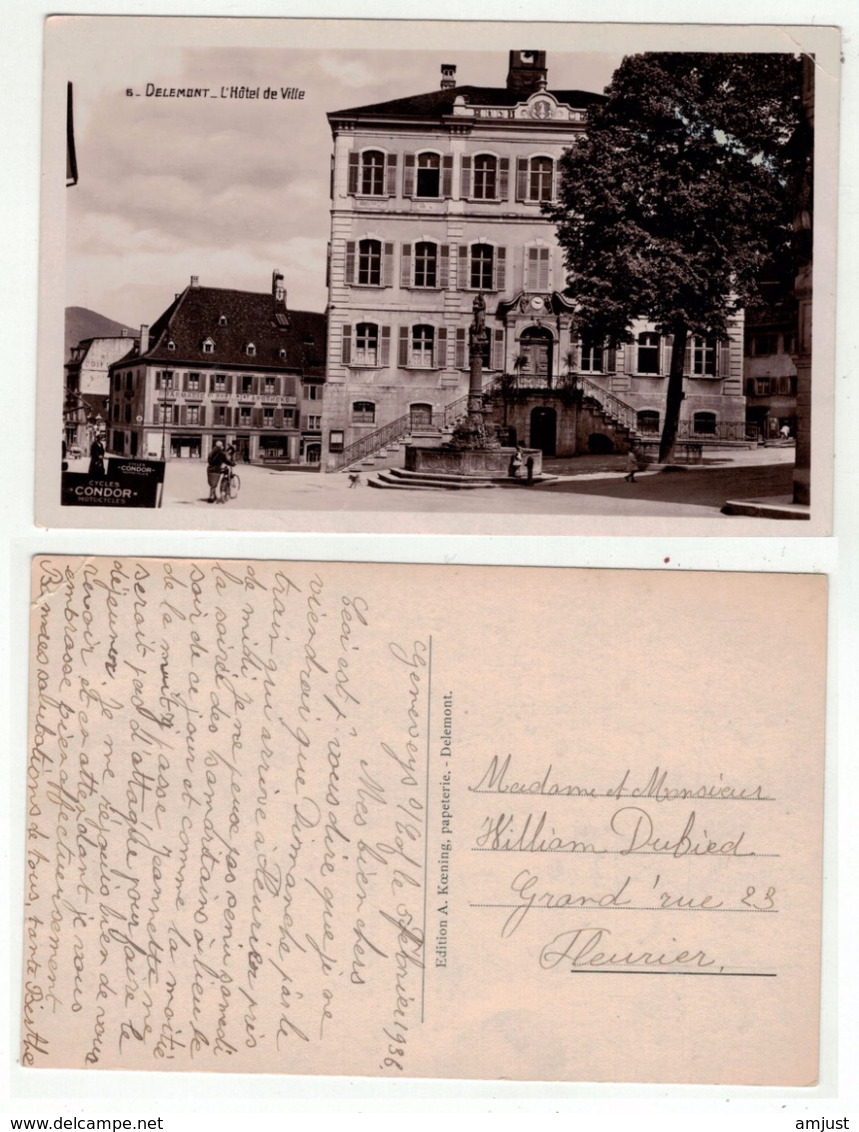 6 - DELEMONT - L'Hôtel de Ville
CYCLES
CONDOR
MOTOCYCLES
Geneveys s/ Cof le 5 février 1938.
Mes bien chers
Ceci est p. vous dire que je ne
viendrai que Dimanche par le
train qui arrive à Fleurier près
de midi. Je ne peux pas venir samedi
la soirée des samaritains a lieu le
soir de ce jour et comme la moitié
de la nuit passe Jeannette ne
serait pas d'attaque pour faire le
déjeuner. Je me réjouis bien de vous
revoir et en attendant je vous
embrasse bien affectueusement
B. mes salutations de tous, tante Berthe
Edition A. Kœning, papeterie. - Delemont.
Madame et Monsieur
William Dubied
Grand'rue 23
Fleurier,
amjust
www.delcampe.net